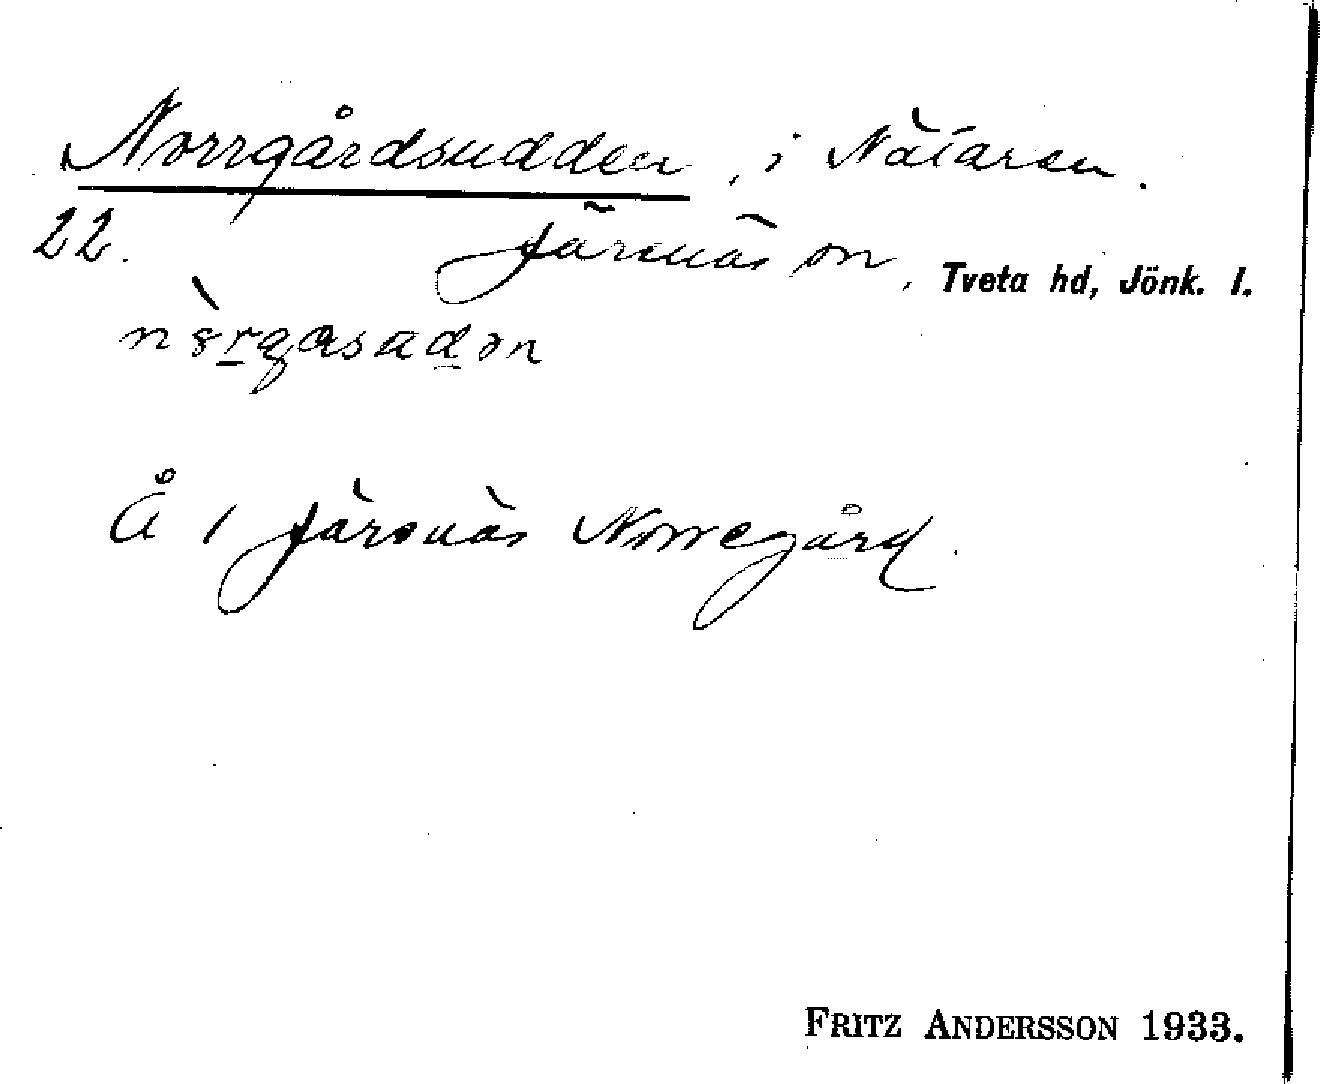 Norrgårdsudden, i Nätaren.
22. Järsnäs sn, Tveta hd, Jönk. l.
Å 1 Järsnäs Norregård.
FRITZ ANDERSSON 1933.